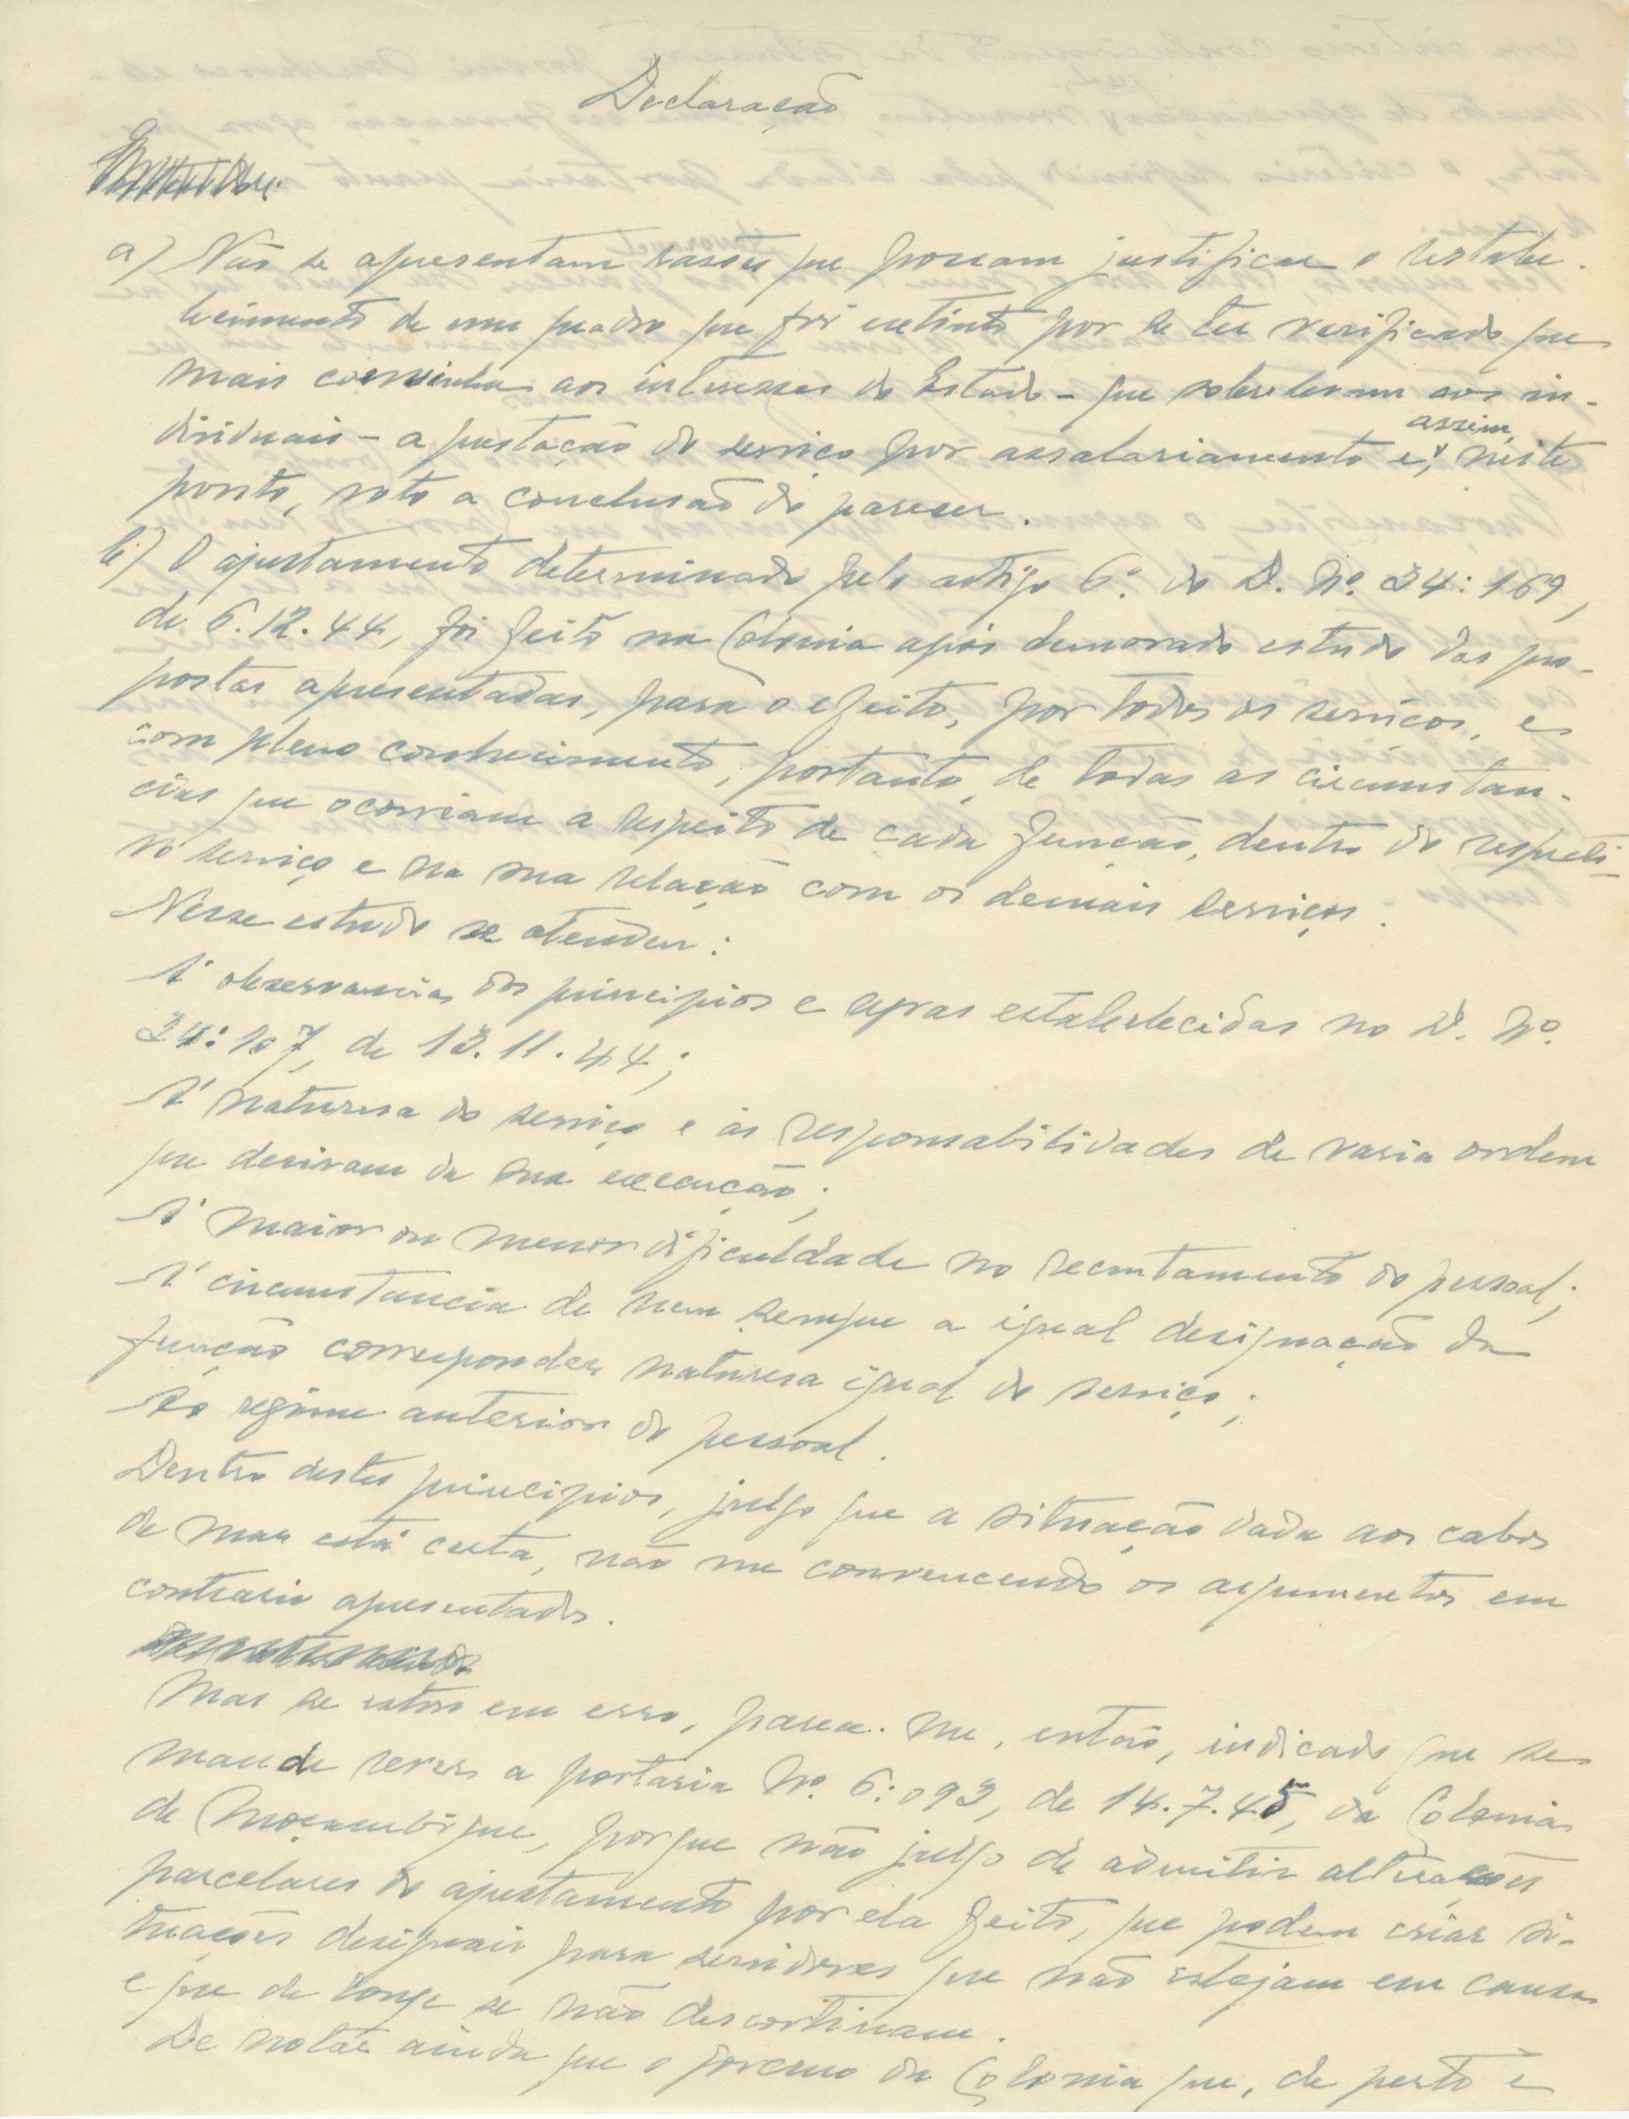 Declaração
a) Não se apresentam rasões que possam justificar o restabe-
lecimento de um quadro que foi extinto por se ter verificado que
mais convinha aos interesses do Estado - que sobrelevam aos in-
dividuais - a prestação do serviço por assalariamento e, assim, neste
ponto, voto a conclusão do parecer.
b) O ajustamento determinado pelo artigo 6º. do D. Nº. 34:169,
de 6.12.44, foi feito na Colonia após demorado estudo das pro-
postas apresentadas, para o efeito, por todos os serviços, e
com pleno conhecimento, portanto, de todas as circunstan-
cias que ocorriam a respeito de cada função, dentro do respecti-
vo serviço e na sua relação com os demais serviços.
Nesse estudo se atendeu:
Á observancia dos principios e regras estabelecidas no D. Nº.
34:107, de 13.11.44;
Á naturesa do serviço e ás responsabilidades de varia ordem
que derivam da sua execução;
Á maior ou menor dificuldade no recrutamento do pessoal;
Á circunstancia de nem sempre a igual designação da
função corresponder naturesa igual do serviço;
Ao regime anterior do pessoal.
Dentro destes principios, julgo que a situação dada aos cabos
de mar está certa, não me convencendo os argumentos em
contrario apresentados.
Mas se estou em erro, parece-me, então, indicado que se
mande rever a portaria Nº. 6:093, de 14.7.45, da Colonia
de Moçambique, porque não julgo de admitir alterações
parcelares do ajustamento por ela feito, que podem criar si-
tuações desiguais para servidores que não estejam em causa
e que de longe se não descortinam.
De notar ainda que o governo da Colonia que, de perto e